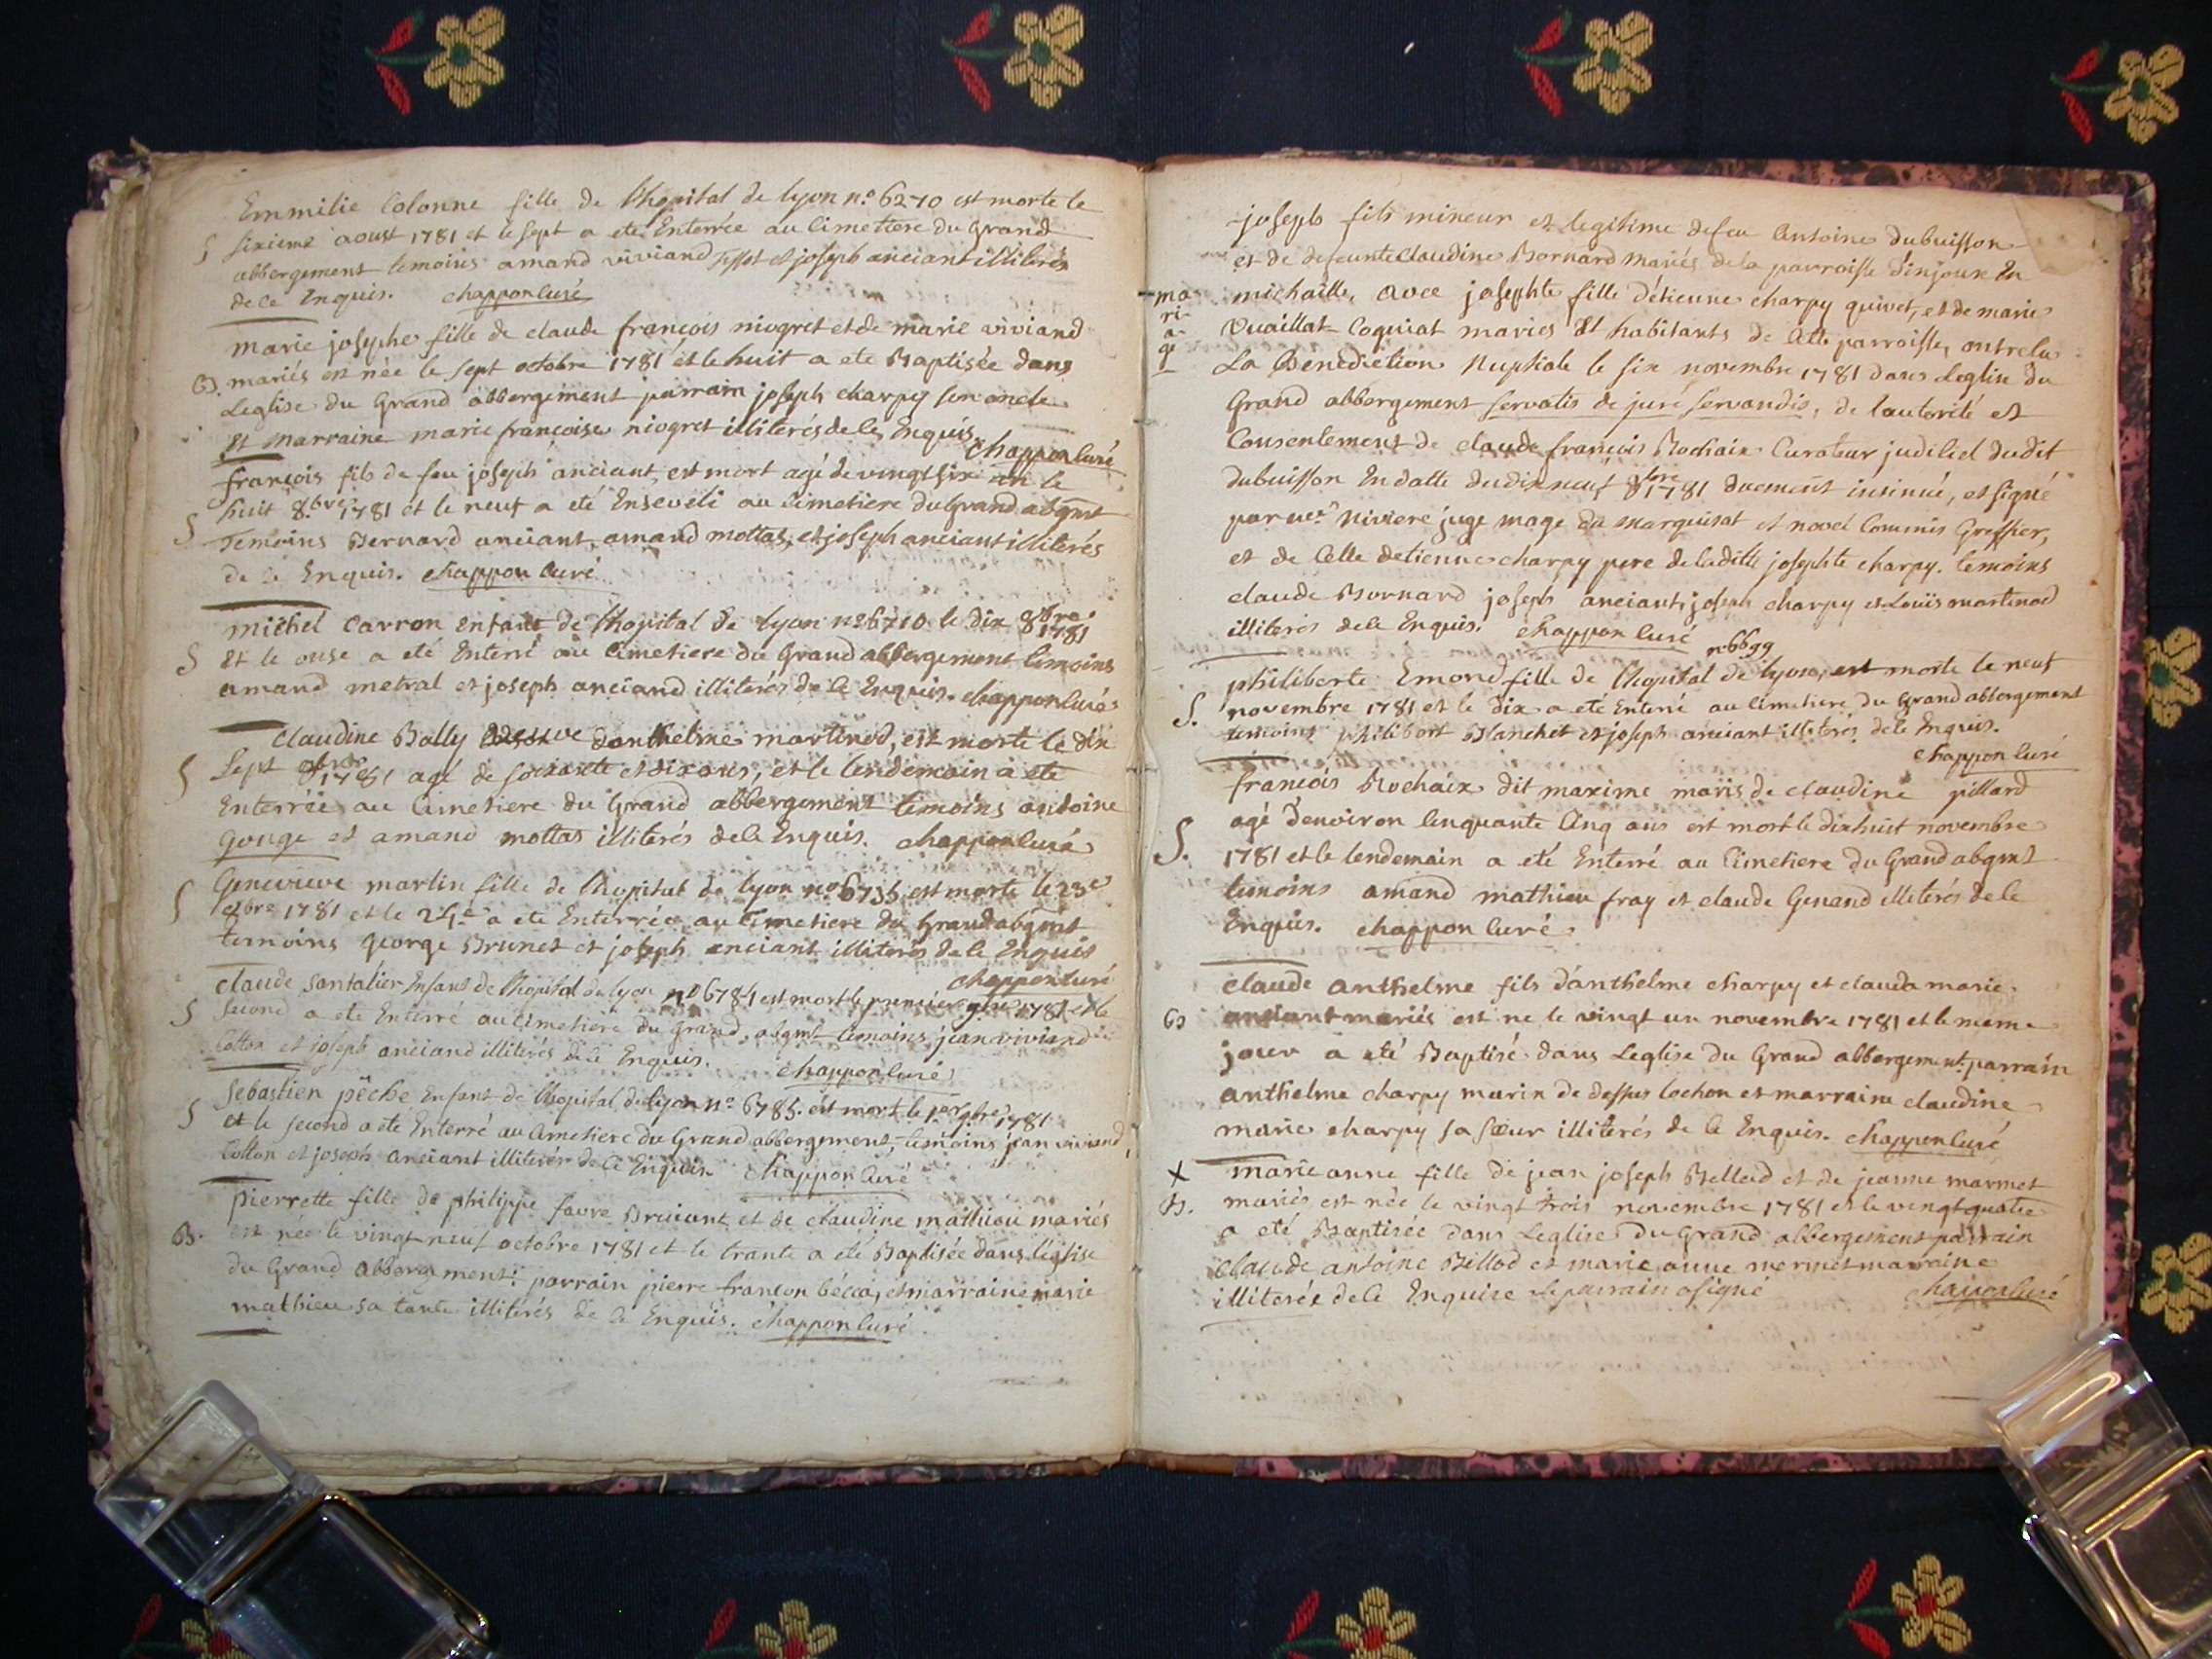 Emmilie Colonne fille de l'hopital de lyon n.º 6270 est morte le
S sixieme aoust 1781 et le sept a eté Enterrée au Cimetiere du Grand
abbergement temoins amand viviand et joseph anciant illiterés
de ce Enquis. chappon curé
marie josephe fille de claude françois niogret et de marie viviand
B. mariés est née le sept octobre 1781 et le huit a eté Baptisée dans
Leglise du Grand abbergement parrain joseph charpy son oncle
Et marraine marie françoise niogret illiterés de ce Enquis
chappon curé
françois fils de feu joseph anciant est mort agé de vingt six an le
S huit 8.bre 1781 et le neuf a eté Enseveli au Cimetiere du Grand abgmt
Temoins Bernard anciant, amand mottas, et joseph anciant illiterés
de ce Enquis. chappon curé
michel Carron Enfant de l'hopital de Lyon nº 6710 le dix 8bre 1781
S Et le onse a eté Enterré au Cimetiere du Grand abbergement temoins
amand metral et joseph anciand illiterés de ce Enquis. chappon curé
Claudine Bally veuve danthelme martinod, est morte le dix
S Sept 8bre 1781 agé de soixante et dix ans, et le lendemain a eté
Enterrée au Cimetiere du Grand abbergement temoins antoine
Gonge et amand mottas illiterés de ce Enquis. chappon curé
S Genevieve martin fille de l'hopital de lyon nº 6735 est morte le 23e
8bre 1781 et le 24.e a eté Enterrée au Cimetiere du Grand abgmt
temoins George Brunet et joseph anciant illiterés de ce Enquis
chappon curé
claude santalier Enfant de l'hopital de lyon nº 6784 est mort le premier 9bre 1781 et le
S second a eté Enterré au Cimetiere du Grand abgmt temoins jean viviand
Cotton et joseph anciand illiterés de ce Enquis. chappon curé
Sebastien pêche Enfant de l'hopital de lyon nº 6785. est mort le 1er 9bre 1781
S et le second a eté Enterré au Cimetiere du Grand abbergement, temoins jean viviand
Cotton et joseph anciant illiterés de ce Enquis. chappon curé
pierrette fille de philippe favre Bruiant et de claudine mathieu mariés
B. est née le vingt neuf octobre 1781 et le trante a eté Baptisée dans l'eglise
du Grand abbergement: parrain pierre françon bécca, et marraine marie
mathieu sa tante illiterés de ce Enquis. chappon curé
joseph fils mineur et legitime de feu antoine dubuisson
et de defeunte Claudine Bornard mariés de la parroisse d'injoux En
ma michaille, avec josephte fille d'étienne charpy quivet, et de marie
ri
a Vuaillat Coquiat mariés Et habitants de Cette parroisse, ont reçu
ge La Benediction Nuptiale le six novembre 1781 dans Leglise du
Grand abbergement servatis de jure servandis, de l'autorité et
Consentement de claude françois Rochaix Curateur judiciel dudit
dubuisson En datte du dix neuf 8bre 1781 duement insinué, et signé
par me. Niviere juge mage du marquisat et novel Commis Greffier,
et de Celle detienne charpy pere de laditte josephte charpy. temoins
claude Bornard joseph anciant, joseph charpy et Louis martinod
illiterés de ce Enquis. chappon curé
n. 6699
philiberte Emond fille de l'hopital de lyon, est morte le neuf
S. novembre 1781 et le dix a eté Enterré au Cimetiere du Grand abbergement
temoins philibert Blanchet et joseph anciant illiterés de ce Enquis.
chappon curé
françois Rochaix dit maxime maris de claudine pillard
S. agé d'environ Cinquante Cinq ans est mort le dix huit novembre
1781 et le lendemain a eté Enterré au Cimetiere du Grand abgmt
temoins amand mathieu fray et claude Genand illiterés de ce
Enquis. chappon curé
claude anthelme fils d'anthelme charpy et clauda marie
B anciant mariés est ne le vingt un novembre 1781 et le meme
jour a eté Baptisé dans Leglise du Grand abbergement. parrain
anthelme charpy murin de dessus lochon et marraine claudine
marie charpy sa sœur illiterés de ce Enquis. chappon curé
X marie anne fille de jean joseph Bellod et de jeanne marmet
B. mariés est née le vingt trois novembre 1781 et le vingt quatre
a eté Baptisée dans Leglise du Grand abbergement parrain
claude antoine Billod et marie anne mermet marraine
illiterée de ce Enquise le parrain a signé chappon curé